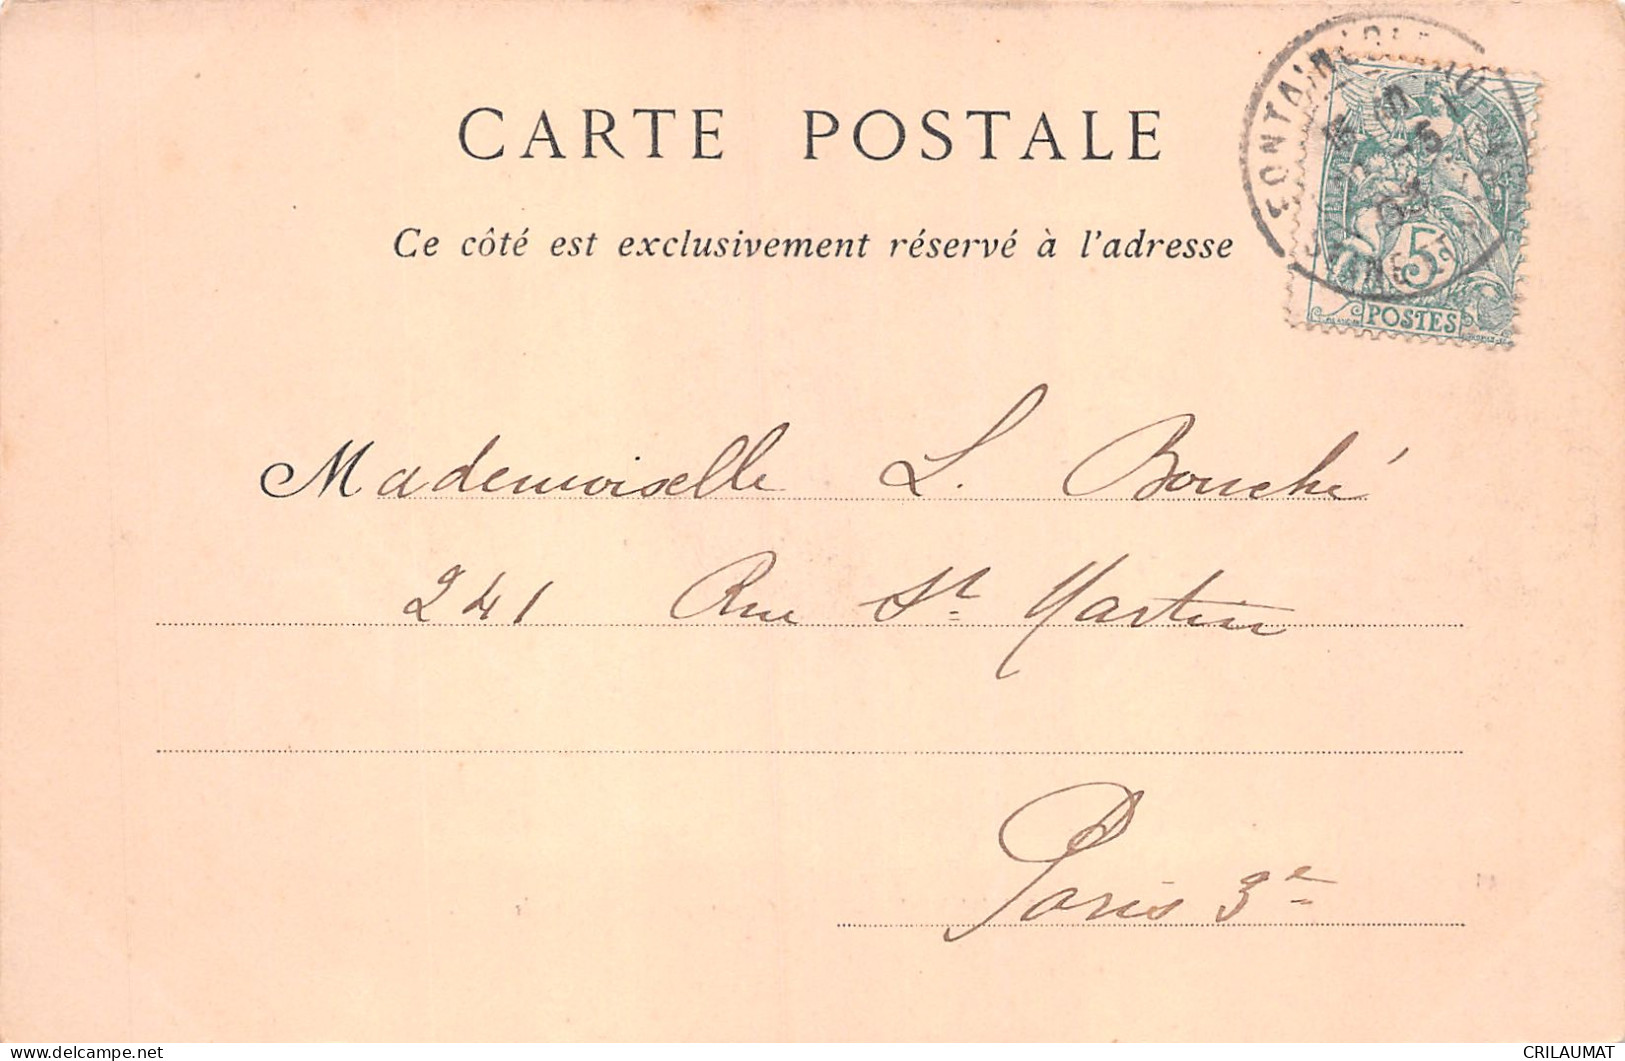 CARTE POSTALE
Ce côté est exclusivement réservé à l'adresse
FONTAINEBLEAU
5
POSTES
Mademoiselle L. Bouché
241 Rue St Martin
Paris 3e
CRILAUMAT